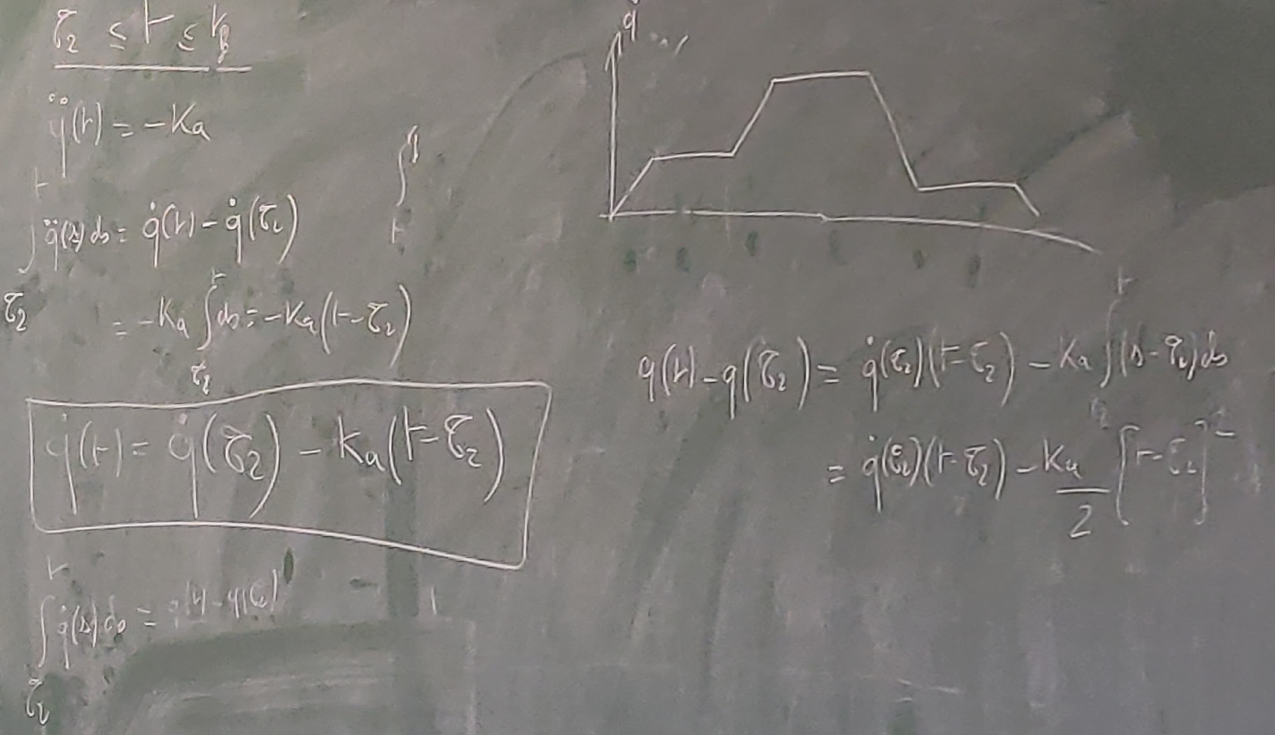 τ₂ ≤ t ≤ t_f
q̈(t) = -Ka
∫_{τ₂}^{t} q̈(s) ds = q̇(t) - q̇(τ₂)
= -Ka ∫_{τ₂}^{t} ds = -Ka(t-τ₂)
q̇(t) = q̇(τ₂) - Ka(t-τ₂)
∫_{τ₂}^{t} q̇(s) ds = q(t) - q(τ₂)
q̇
q(t) - q(τ₂) = q̇(τ₂)(t-τ₂) - Ka ∫_{τ₂}^{t} (s-τ₂) ds
= q̇(τ₂)(t-τ₂) - Ka/2 [t-τ₂]²